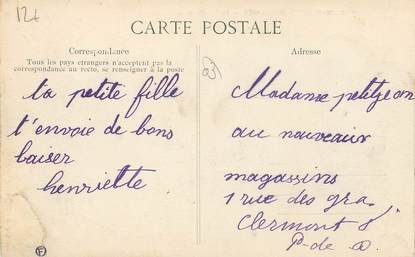 12t
CARTE POSTALE
Correspondance
Tous les pays étrangers n'acceptent pas la
correspondance au recto, se renseigner à la poste
ta petite fille
t'envoie de bons
baiser
henriette
Adresse
Madame petitjean
au nouveaux
magassins
1 rue des gra
Clermont
P-de-D.
F